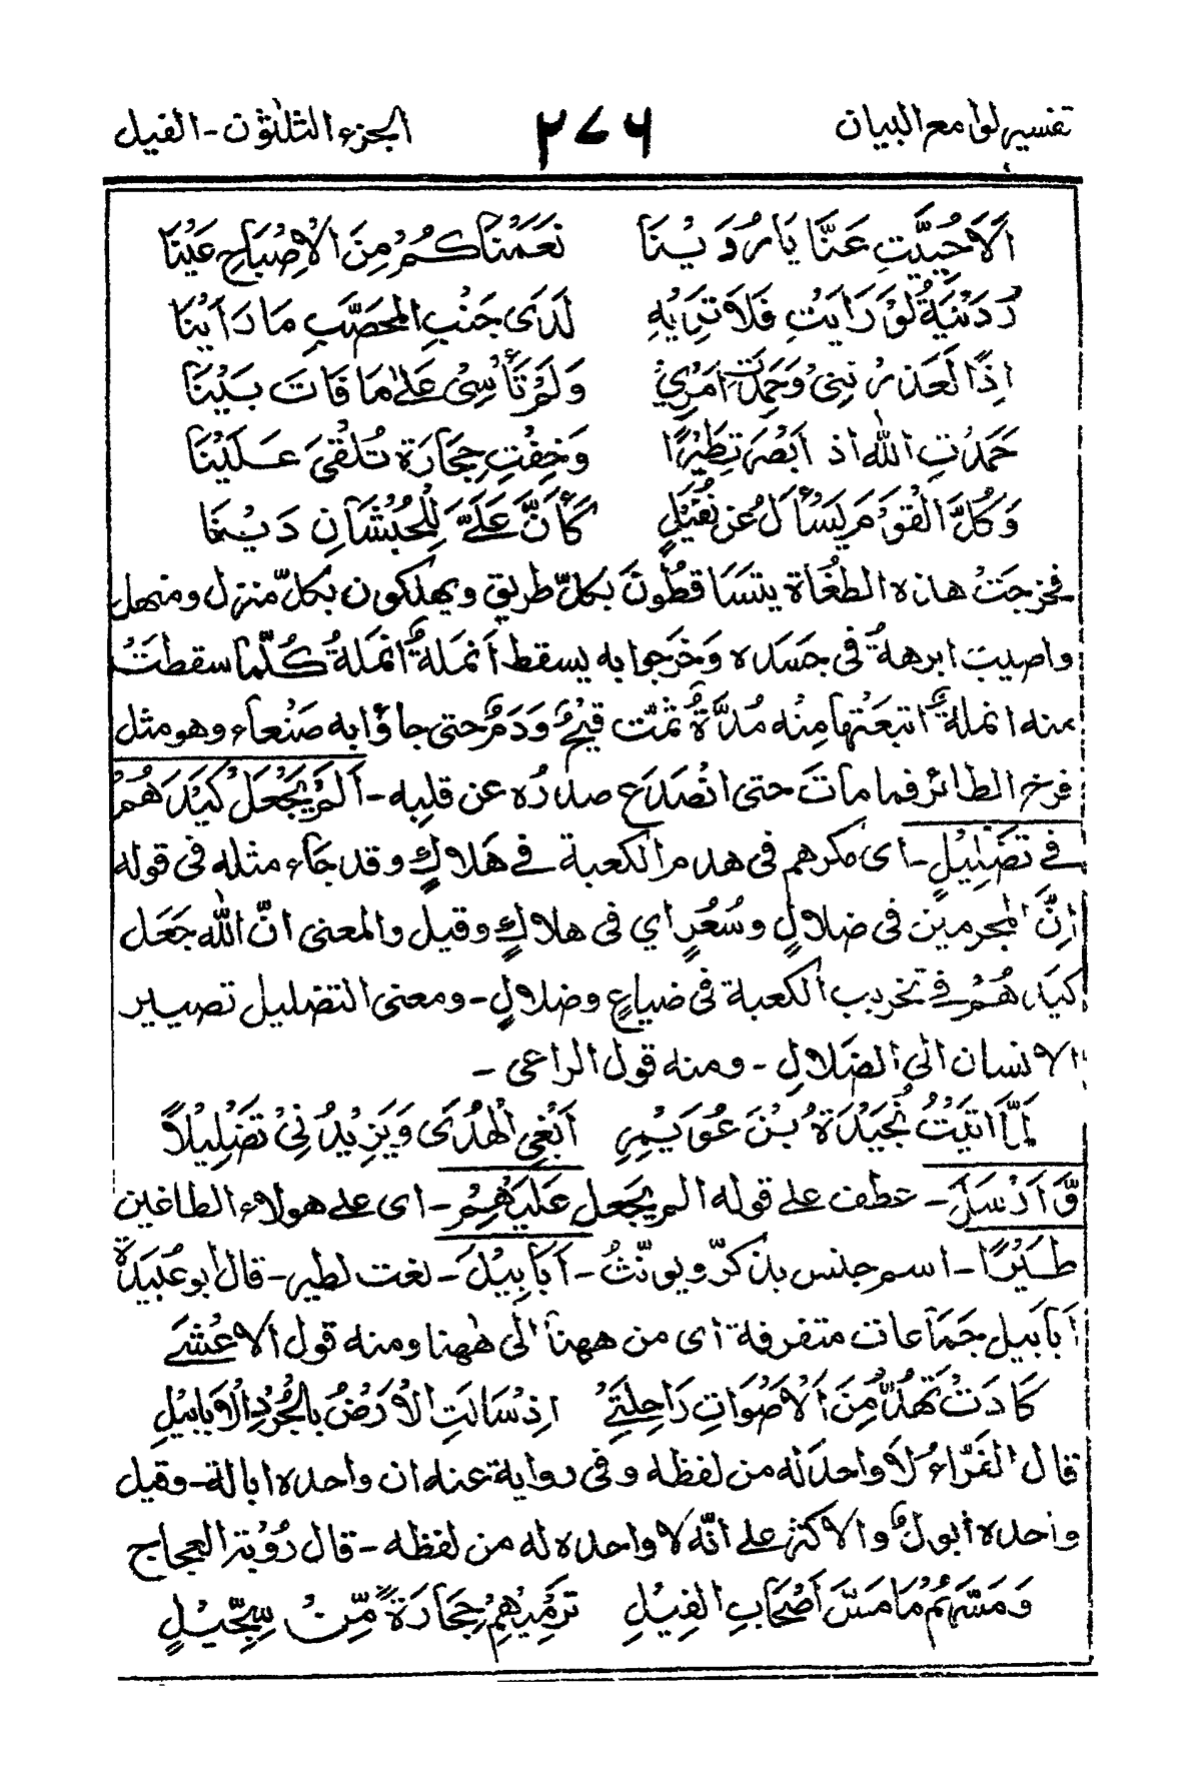 تفسير لوامع البيان ٢٧٦ الجزء الثلاثون - الفيل
اَلَا حُيِّيْتِ عَنَّا يَا رُدَيْنَا نَعَمْنَاكُمْ مِنَ الْاِصْبَاحِ عَيْنَا
رُدَيْنَةُ لَوْ رَاَيْتِ فَلَا تَرَايْهِ لَدَى جَنْبِ المُحَصَّبِ مَا رَاَيْنَا
اِذًا لَعَذَرْتِنِيْ وَحَمِدْتِ اَمْرِيْ وَلَمْ تَأْسِيْ عَلٰى مَا فَاتَ بَيْنَا
حَمَدْتُ اللّٰهَ اذ اَبْصَرَتِ طَيْرًا وَخِفْتِ حِجَارَةً تُلْقٰى عَلَيْنَا
وَكُلُّ القَوْمِ يَسْأَلُ عَنْ نُفَيْلٍ كَأَنَّ عَلَيَّ لِلْحُبْشَانِ دَيْنَا
فخرجتْ هٰذه الطغاة يتساقطُونَ بكلّ طريق ويهلكون بكلّ منزل ومنهل
واصيبَ ابرهةُ فى جَسَده وَخَرجوا به يسقط اَنْمَلةٌ اَنْمَلةٌ كُلّما سقطتْ
منه انملةٌ اتبعَتْها مِنْه مُدَّةٌ ثمّت قَيْحٌ وَدَمٌ حتى جاؤا به صَنْعاء وهو مثل
فرخ الطائر فما ماتَ حتى انْصَدَع صدرُه عن قلبه - اَلَمْ يَجْعَلْ كَيْدَهُمْ
فِيْ تَضْلِيْلٍ - اى مكرهم فى هدم الكعبة فِيْ هَلاكٍ وقد جَاء مثله فى قوله
اِنَّ المجرمين فى ضلالٍ وسُعُرٍ اي فى هلاكٍ وقيل والمعنى انّ اللّٰه جَعَل
كيدَهُمْ فى تخريب الكعبة فى ضياعٍ وضلالٍ - ومعنى التضليل تصيير
الانسان الى الضّلالِ - ومنه قول الراعى -
لمّا اتَيْتُ نُجَيْدَةَ بْنَ عُوَيْمِرٍ اَبْغِى الْهُدَى وَيَزِيْدُنِيْ تَضْلِيْلًا
وَّاَرْسَلَ - عطف على قوله الم يجعل عَلَيْهِمْ - اى على هولاء الطاغين
طَيْرًا - اسم جنس يذكّر ويونّثُ - اَبَابِيْلَ - نعت لطير - قال ابو عُبَيدةَ
اَبَابيل جَمَاعات متفرقة اى من ههنا الى ههنا ومنه قول الاعْشَى
كَادَتْ تُهَدُّ مِنَ الْاَصْوَاتِ رَاحِلَتِيْ اِذْ سَالَتِ الْاَرْضُ بِالْجُرْدِ الْاَبَابِيْلِ
قال الفَرّاءُ لَا واحدَ له من لفظه وفى رواية عنه ان واحده ابالة - وقيل
واحده ابولٌ والاكثر على انّه لا واحده له من لفظه - قال رُوبة العجاج
وَمَسَّهُمْ مَا مَسَّ اَصْحَابَ الْفِيْلِ تَرْمِيْهِمْ حِجَارَةٌ مِّنْ سِجِّيْلٍ